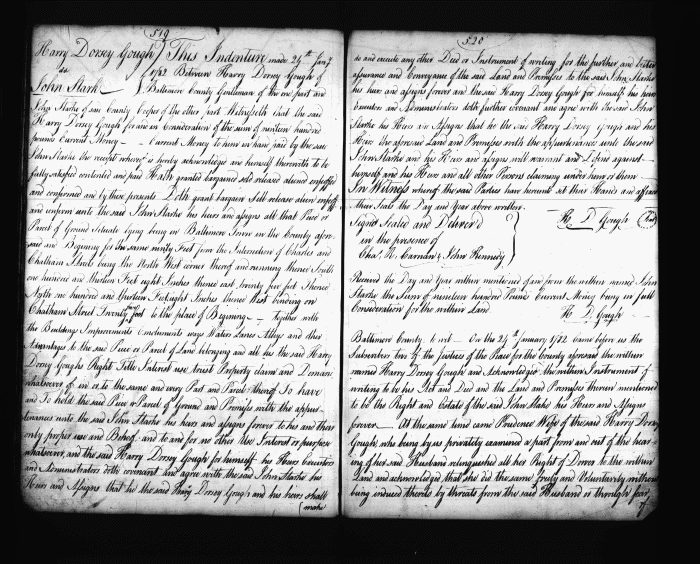 519
Harry Dorsey Gough } This Indenture made 29th Jany
to 1782 Between Harry Dorsey Gough of
John Starke Baltimore County Gentleman of the one part and
John Starke of said County Cooper of the other part Witnesseth that the said
Harry Dorsey Gough for and in Consideration of the sum of nineteen hundred
pounds Current Money - Current Money to him in hand paid by the said
John Starke the receipt whereof is hereby acknowledged and himself therewith to be
fully satisfied contented and paid Hath granted bargained sold released aliened enfeoffed
and confirmed and by these presents Doth grant bargain sell release alien enfeoff
and confirm unto the said John Starke his heirs and assigns all that Piece or
Parcel of Ground Situate lying being in Baltimore Town in the County afore
said and Begining for the same ninety feet from the Intersection of Charles and
Chatham Streets being the North West corner thereof and running thence South
one hundred and thirteen feet eight Inches thence East twenty five feet thence
North one hundred and thirteen feet eight Inches thence West binding on
Chatham Street twenty feet to the place of Begining - together with
the Buildings Improvements Conduments ways Waters Lanes Alleys and other
Advantages to the said Piece or Parcel of Land belonging and all his the said Harry
Dorsey Goughs Right Title Interest use trust Property claim and Demand
whatsoever of in or to the same and every Part and Parcel thereof To have
and To hold the said Piece or Parcel of Ground and Premises with the appur
tenances unto the said John Starke his heirs and assigns forever to his and theirs
only proper use and Behoof and to and for no other Use Interest or purpose
whatsoever and the said Harry Dorsey Gough for himself his Heirs Executors
and Administrators doth covenant and agree with the said John Starke his
Heirs and Assigns that he the said Harry Dorsey Gough and his heirs shall
(make
520
do and execute any other Deed or Instrument of writing for the further and better
assurance and Conveyance of the said Land and Premises to the said John Starke
his heirs and assigns forever and the said Harry Dorsey Gough for himself his heirs
Executors and Administrators doth further covenant and agree with the said John
Starke his Heirs and Assigns that he the said Harry Dorsey Gough and his
Heirs the aforesaid Land and Premises with the appurtenances unto the said
John Starke and his Heirs and assigns will warrant and Defend against
himself and his Heirs and all other Persons claiming under him or them
In Witness whereof the said Parties have hereunto set their Hands and affixed
their Seals the Day and Year above written
Signed Sealed and Deliver'd
in the presence of
Chas R. Carnan & John Hennesy
H D Gough (Seal)
Received the Day and Year within mentioned of and from the within named John
Starke the Sum of nineteen hundred Pounds Current Money being in full
Consideration for the within Land
H D Gough
Baltimore County to wit - On the 29th January 1782 Came before us the
Subscribers two of the Justices of the Peace for the County aforesaid the within
named Harry Dorsey Gough and Acknowledged the within Instrument of
writing to be his Act and Deed and the Land and Premises therein mentioned
to be the Right and Estate of the said John Starke his Heirs and Assigns
forever - At the same time came Prudence Wife of the said Harry Dorsey
Gough who being by us privately examined a part from and out of the hear
ing of her said Husband relinquished all her Right of Dower to the within
Land and acknowledged that she did the same freely and Voluntarily without
being induced thereto by threats from the said Husband or through fear
of